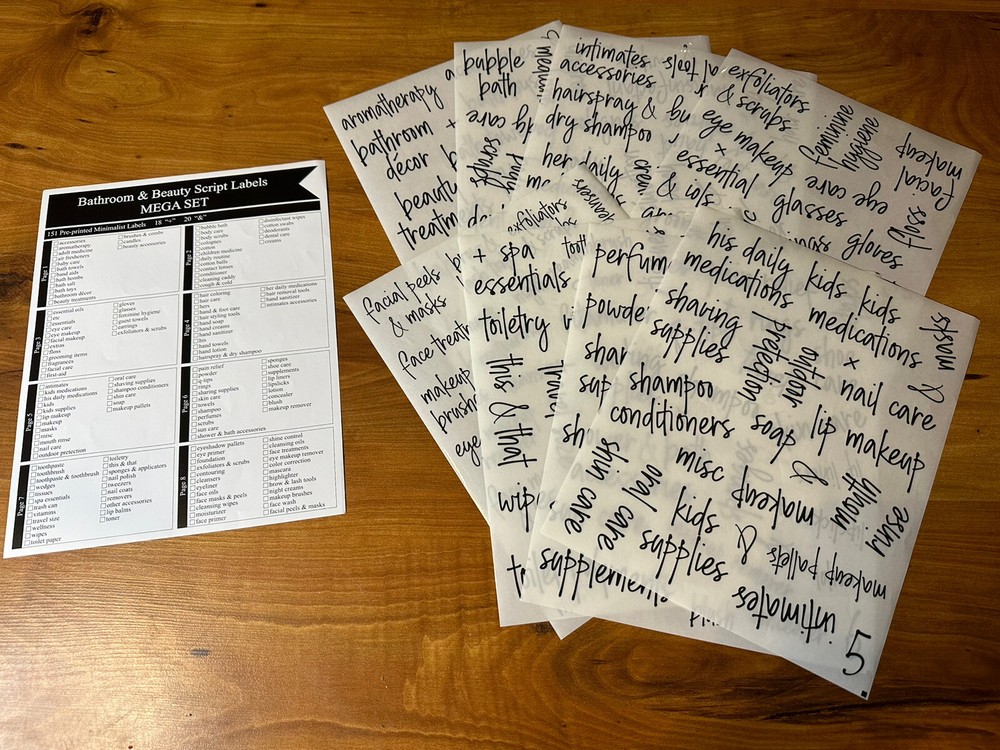 Bathroom & Beauty Script Labels
MEGA SET
151 Pre-printed Minimalist Labels 18 "+" 20 "&"
Page 1
accessories
aromatherapy
adult medicine
air fresheners
baby care
bath towels
band aids
bath bombs
bath salt
bath toys
bathroom décor
beauty treatments
brushes & combs
candles
beauty accessories
Page 2
bubble bath
body care
body scrubs
colognes
cotton
children medicine
daily routine
cotton balls
contact lenses
conditioner
cleaning cards
cough & cold
disinfectant wipes
cotton swabs
deodorants
dental care
creams
Page 3
essential oils
etc
essentials
eye care
eye makeup
facial makeup
extras
floss
grooming items
fragrances
facial care
first-aid
gloves
glasses
feminine hygiene
guest towels
earrings
exfoliators & scrubs
Page 4
hair coloring
hair care
hers
hand & foot care
hair styling tools
hand soap
hand creams
hand sanitizer
his
hand towels
hand lotion
hairspray & dry shampoo
her daily medications
hair removal tools
hand sanitizer
intimates accessories
Page 5
intimates
kids medications
his daily medications
kids
kids supplies
lip makeup
makeup
masks
misc
mouth rinse
nail care
outdoor protection
oral care
shaving supplies
shampoo conditioners
skin care
soap
makeup pallets
Page 6
pain relief
powder
q-tips
rings
sharing supplies
skin care
towels
shampoo
perfumes
scrubs
sun care
shower & bath accessories
sponges
shoe care
supplements
lip liners
lipsticks
lotion
concealer
blush
makeup remover
Page 7
toothpaste
toothbrush
toothpaste & toothbrush
wedges
tissues
spa essentials
trash can
vitamins
travel size
wellness
wipes
toilet paper
toiletry
this & that
sponges & applicators
nail polish
tweezers
nail coats
removers
other accessories
lip balms
toner
Page 8
eyeshadow pallets
eye primer
foundation
exfoliators & scrubs
contouring
cleansers
eyeliner
face oils
face masks & peels
cleansing wipes
moisturizer
face primer
shine control
cleansing oils
face treatments
eye makeup remover
color correction
mascara
highlighter
brow & lash tools
night creams
makeup brushes
face wash
facial peels & masks
aromatherapy
bathroom +
décor
beauty
bubble
bath
intimates
accessories
hairspray &
dry shampoo
her daily
exfoliators
& scrubs
eye makeup
+
essential
& oils
glasses
feminine
hygiene
eye care
gloves
facial
makeup
floss
facial peels
& masks
face
makeup
eye
exfoliators
+ spa
essentials
toiletry
this & that
powde
supplements
his daily
medications
kids
kids
medications
+
masks
&
shaving
supplies
outdoor
protection
nail care
shampoo
conditioners
soap
lip makeup
&
misc
makeup
mouth
rinse
skin care
oral care
kids
supplies
&
makeup pallets
intimates
5